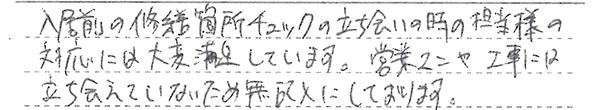 入居前の修繕箇所チェックの立ち会いの時の担当様の
対応には大変満足しています。営業マンや工事には
立ち会えていないため無記入にしております。